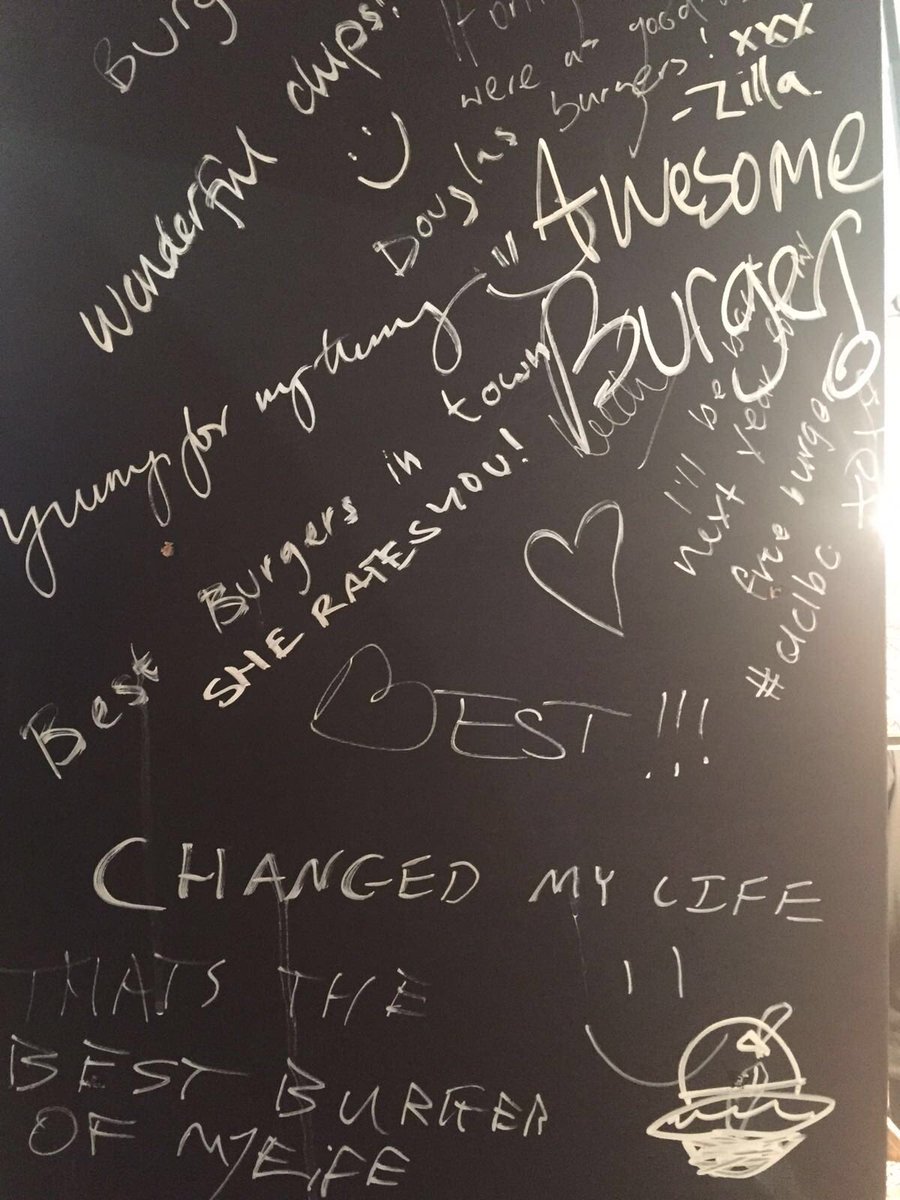 Burg
wonderful chips!
were as good
Douglas burgers! xxx
-Zilla.
Awesome
Burger
Yummy for my tummy
I'll be back
next year
free burger
#dclbc
Best Burgers in town
SHE RATES YOU!
BEST!!!
CHANGED MY LIFE
THATS THE
BEST BURGER
OF MY LiFE